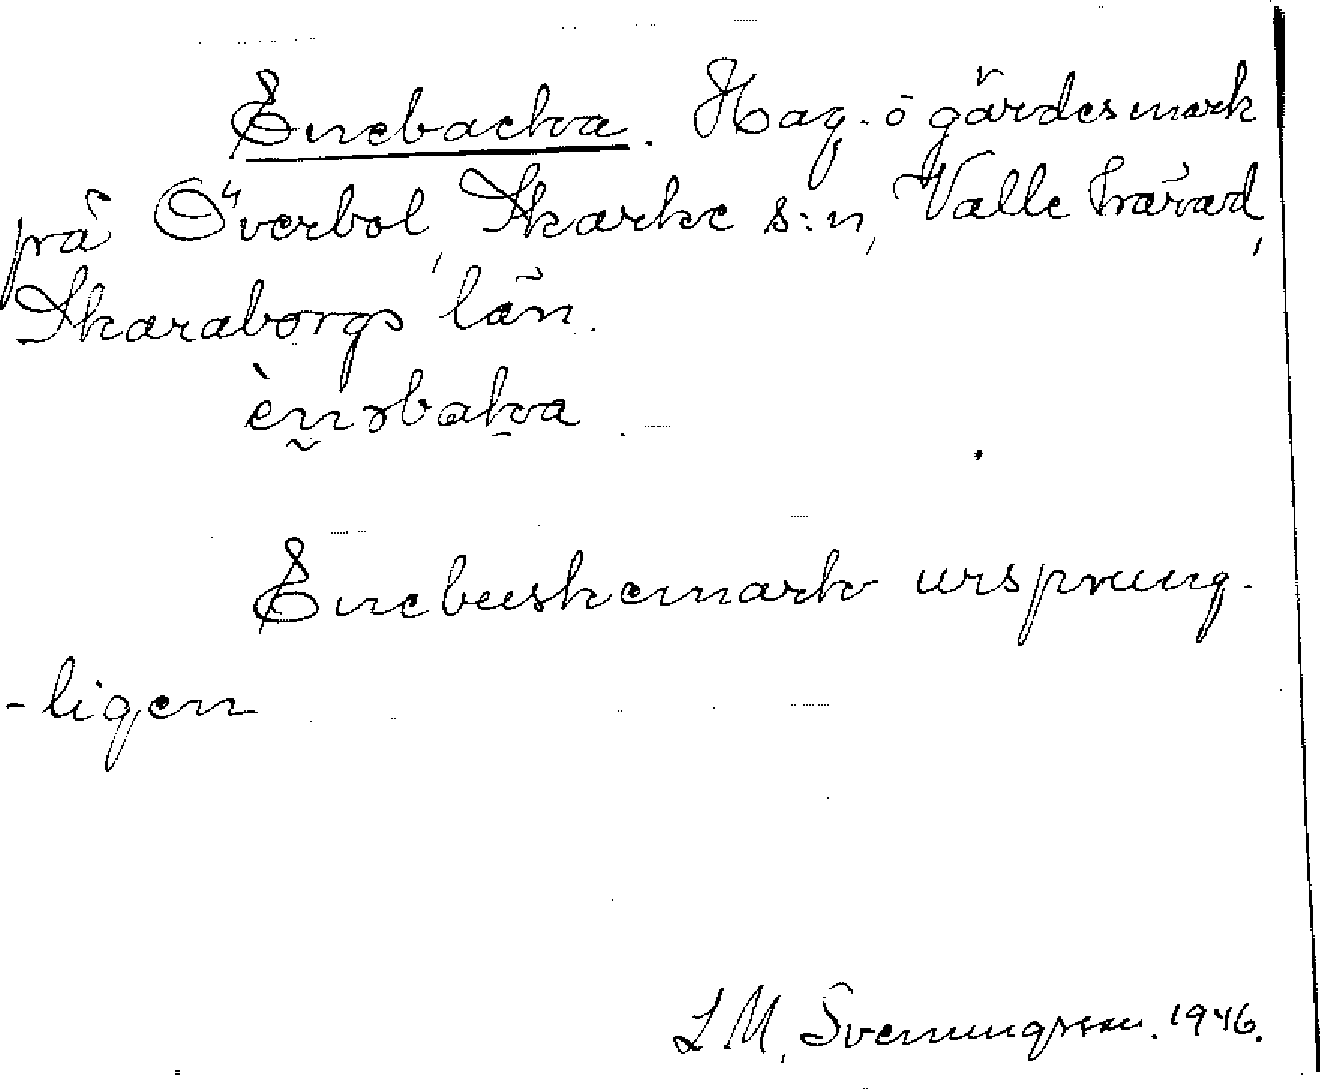 Enebacka. Hag- o gärdesmark
på Överbol, Skarke s:n, Valle härad,
Skaraborgs län.
ènəbaka
Enebuskemark ursprung-
-ligen
L M, Svenungsson. 1946.